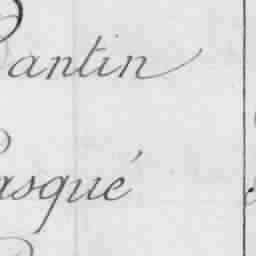 Pantin
Pasqué